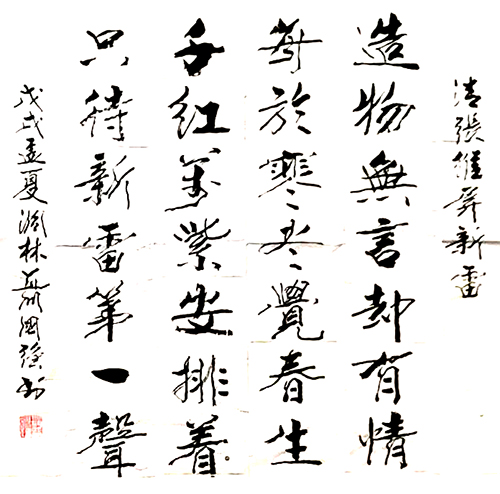 清張維屏新雷
造物無言却有情
每於寒尽覺春生
千紅萬紫安排着
只待新雷第一聲
戊戌孟夏 林 國強书